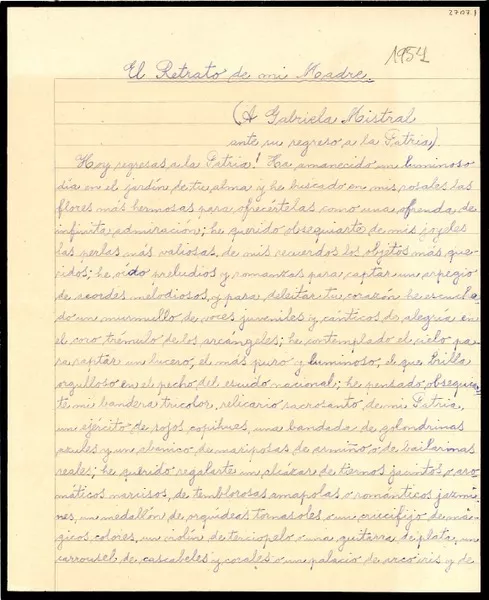 2707.1
1954
El Retrato de mi Madre.
(A Gabriela Mistral
ante su regreso a la Patria).
Hoy regresas a la Patria! Ha amanecido un luminoso
día en el jardín de tu alma y he buscado en mis rosales las
flores más hermosas para ofrecértelas como una ofrenda de
infinita admiración; he querido obsequiarte de mis joyeles
las perlas más valiosas, de mis recuerdos los objetos más que-
ridos; he oído preludios y romanzas para captar un arpegio
de acordes melodiosos, y para deleitar tu corazón he escucha-
do un murmullo de voces juveniles y cánticos de alegría en
el coro trémulo de los arcángeles; he contemplado el cielo pa-
ra raptar un lucero, el más puro y luminoso, el que brilla
orgulloso en el pecho del escudo nacional; he pensado obsequiar-
te mi bandera tricolor, relicario sacrosanto de mi Patria,
un ejército de rojos copihues, una bandada de golondrinas
azules y un abanico de mariposas de armiño o de bailarinas
reales; he querido regalarte un alcázar de tiernos jacintos o aro-
máticos narcisos, de temblorosas amapolas o románticos jazmi-
nes, un medallón de orquídeas tornasoles o un crucifijo de má-
gicos colores, un violín de terciopelo o una guitarra de plata, un
carrousel de cascabeles y corales o un palacio de arco iris y de